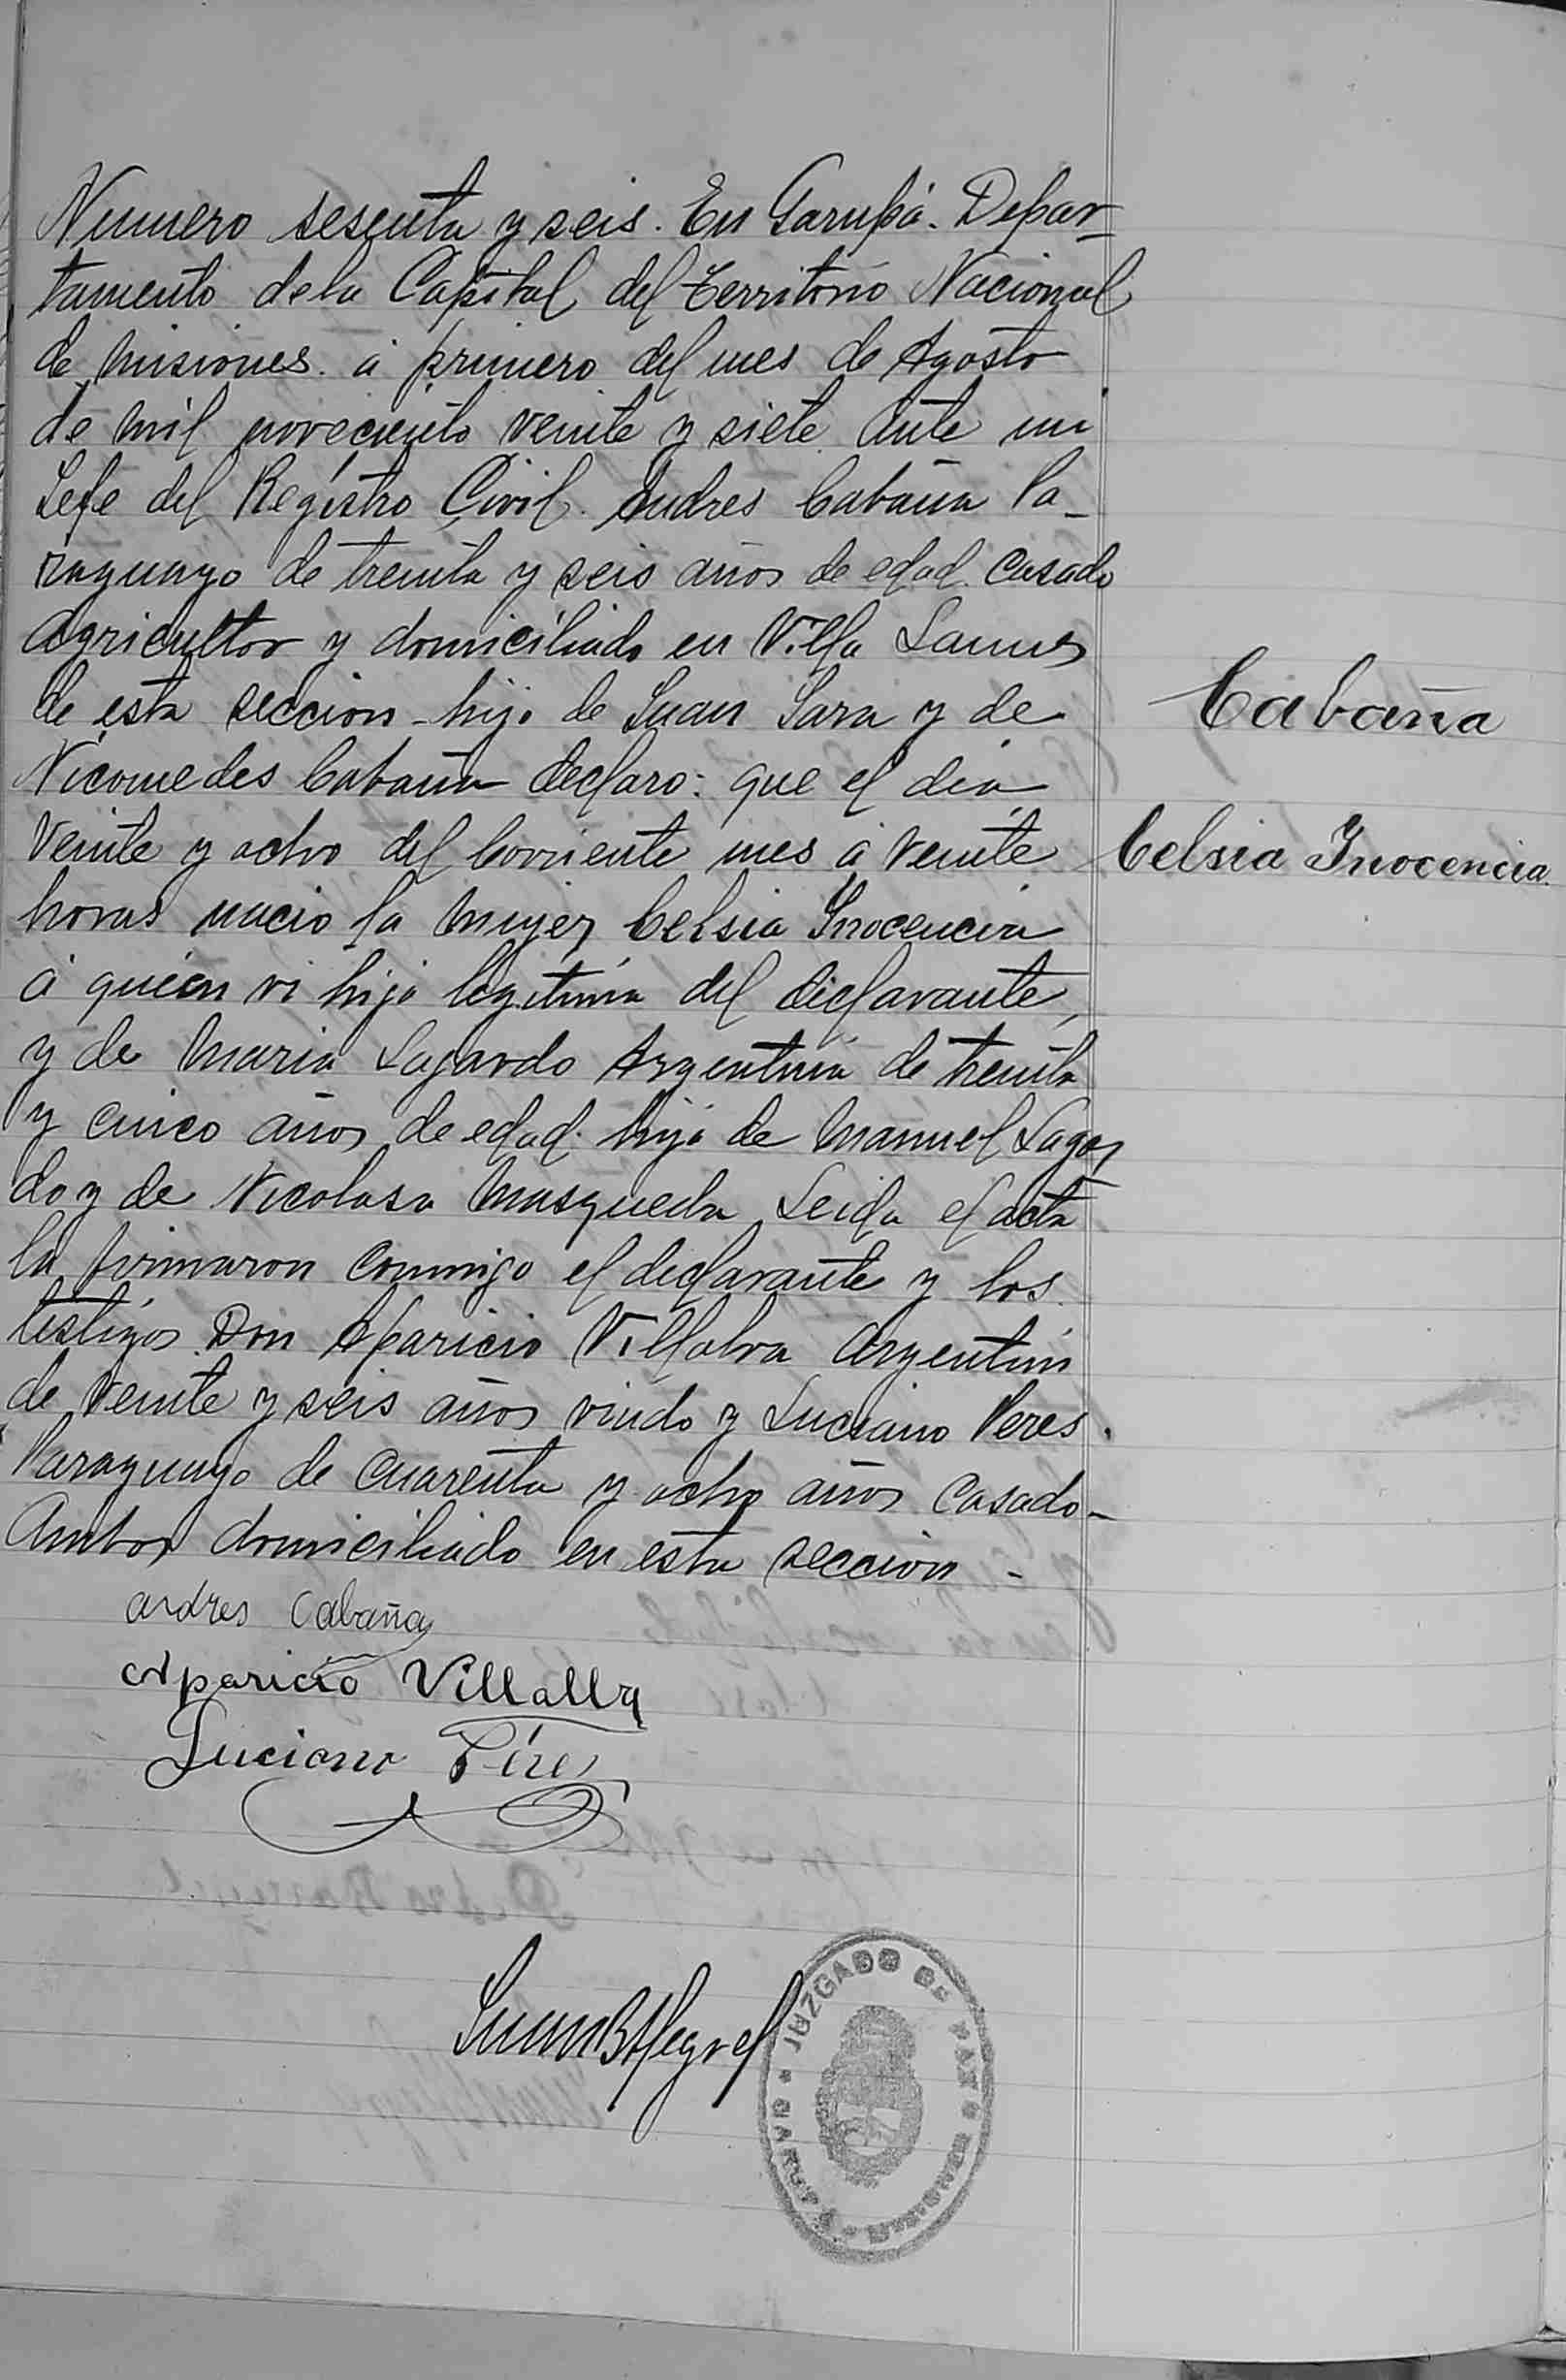 Numero sesenta y seis. En Garupá. Depar-
tamento dela Capital del Territorio Nacional
de Misiones. á primero del mes de Agosto
de mil noveciento veinte y siete. Ante mi
Jefe del Registro Civil. Andres Cabaña Pa-
raguayo de treinta y seis años de edad. Casado
Agricultor y domiciliado en Villa Lanus
de esta seccion - hijo de Juan Jara y de
Nicomedes Cabaña declaro: que el dia
Veinte y ocho del Corriente mes á veinte
horas nacio la mujer Celsia Inocencia
á quien vi hija legitima del declarante,
y de Maria Lagardo Argentina de treinta
y cinco años de edad. hija de Manuel Lagar
do y de Nicolasa Masqueda Leida el acta
la firmaron Conmigo el declarante y los
testigos Don Aparicio Villalva Argentin
de Veinte y seis años viudo y Luciano Peres.
Paraguayo de Cuarenta y ocho años Casado-
Ambos domiciliado en esta seccion -
Cabaña
Celsia Inocencia.
andres Cabaña
Aparicio Villalba
Luciano Pérez
Juan B Alegre
JUZGADO DE PAZ